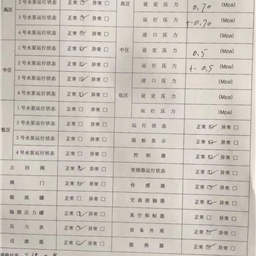 高区 2号水泵运行状态 正常 ☑ 异常 □ 高区 设定压力 0.70 (Mpa)
3号水泵运行状态 正常 ☑ 异常 □ 运行压力 0.70 (Mpa)
4号水泵运行状态 正常 ☑ 异常 □ 进口压力 (Mpa)
中区 1号水泵运行状态 正常 □ 异常 □ 中区 设定压力 0.5 (Mpa)
2号水泵运行状态 正常 □ 异常 □ 运行压力 0.5 (Mpa)
3号水泵运行状态 正常 □ 异常 □ 进口压力 (Mpa)
4号水泵运行状态 正常 □ 异常 □ 低区 设定压力 (Mpa)
低区 1号水泵运行状态 正常 □ 异常 □ 运行压力 (Mpa)
2号水泵运行状态 正常 □ 异常 □ 运行状态 正常 ☑ 异常 □
3号水泵运行状态 正常 □ 异常 □ 面板显示 正常 ☑ 异常 □
4号水泵运行状态 正常 □ 异常 □ 控制器 正常 ☑ 异常 □
止回阀 正常 ☑ 异常 □ 变频器运行状态 正常 ☑ 异常 □
阀门 正常 ☑ 异常 □ 传感器 正常 ☑ 异常 □
稳流罐 正常 ☑ 异常 □ 交流接触器 正常 ☑ 异常 □
隔膜压力罐 正常 ☑ 异常 □ 真空抑制器 正常 ☑ 异常 □
压力表 正常 ☑ 异常 □ 设备外观 正常 ☑ 异常 □
过滤器 正常 ☑ 异常 □ 散热器 正常 ☑ 异常 □